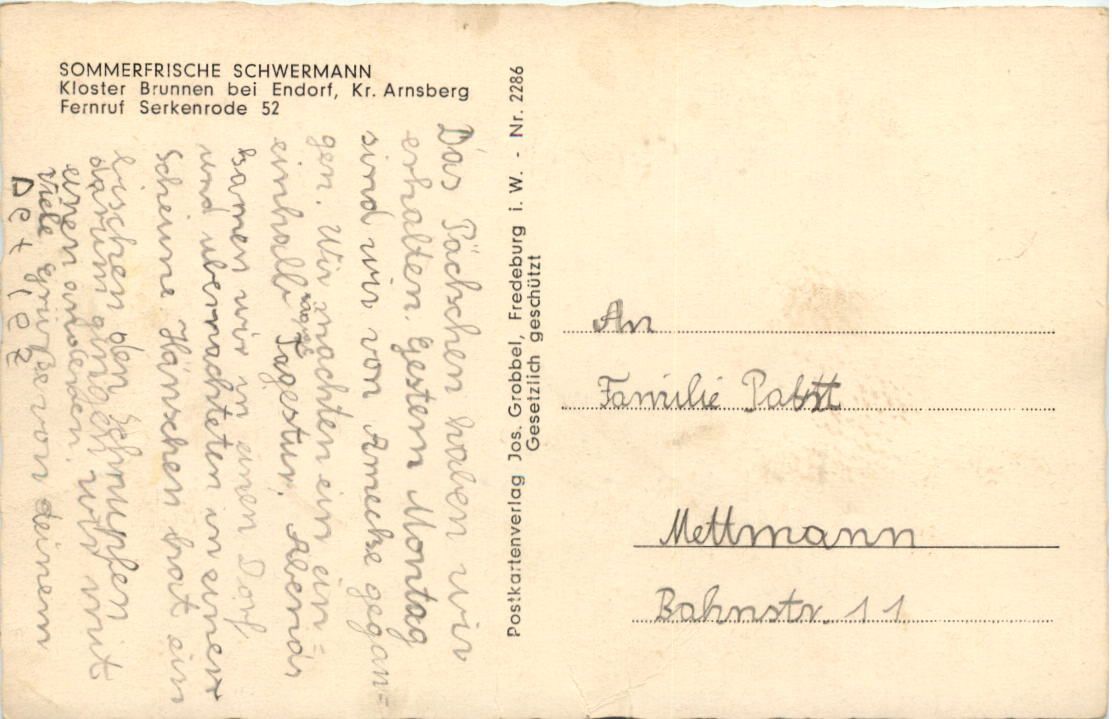 SOMMERFRISCHE SCHWERMANN
Kloster Brunnen bei Endorf, Kr. Arnsberg
Fernruf Serkenrode 52
Das Päckchen haben wir
erhalten. Gestern Montag
sind wir von Amecke gegan=
gen. Wir machten ein ein=
einhalb Tagestur. Abends
kamen wir in einen Dorf,
und übernachteten in einer
Scheune Hänschen hat ein
bischen den Schnupfen
darum gingen wir mit
einen anderen.
Viele Grüße von deinem
Detlef
Postkartenverlag Jos. Grobbel, Fredeburg i. W. - Nr. 2286
Gesetzlich geschützt
An
Familie Pabst
Mettmann
Bahnstr. 11